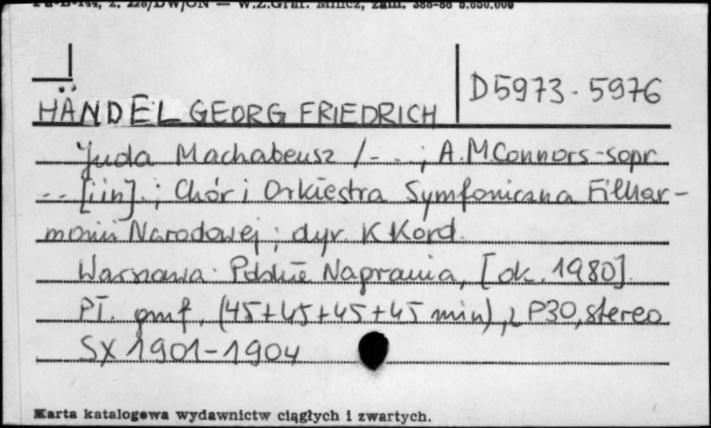 z. 228/DW/ON — W.Z.Graf. Milicz, zam. 388-86 5.650.000
D5973-5976
HÄNDEL GEORG FRIEDRICH
Juda Machabeusz /-..; A.MConnors-sopr
.. [i in].; Chór i Orkiestra Symfoniczna Filhar-
monii Narodowej; dyr. K Kord.
Warszawa: Polskie Nagrania, [ok. 1980].
Pł. gmf. (45+45+45+45 min), P30, stereo
SX 1901-1904
Karta katalogowa wydawnictw ciągłych i zwartych.